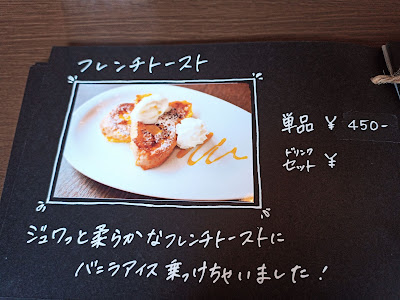 フレンチトースト
単品 ¥ 450-
ドリンク
セット ¥
ジュワっと柔らかなフレンチトーストに
バニラアイス乗っけちゃいました!